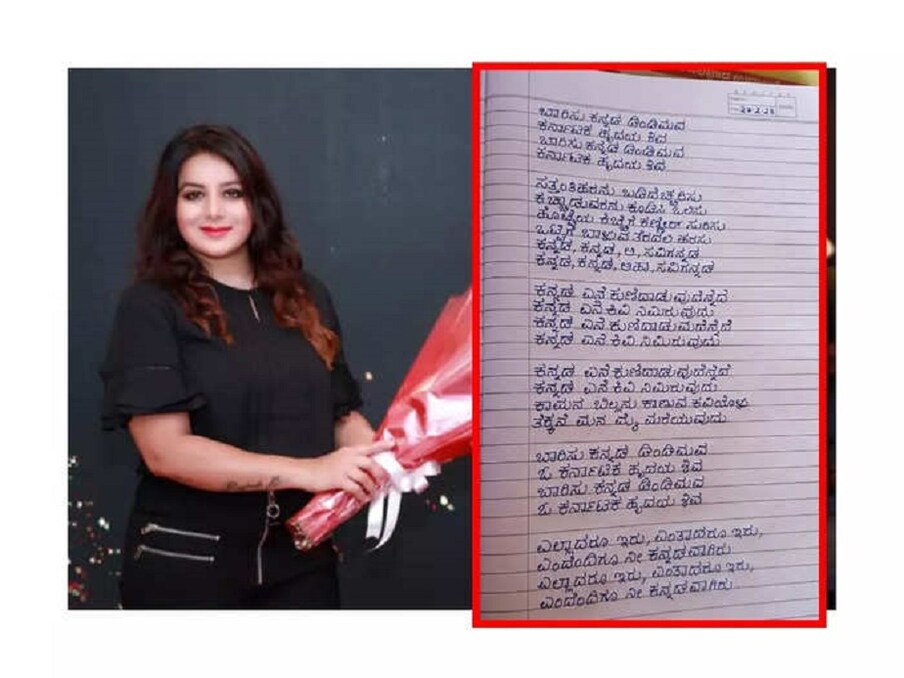 27-2-23
ಬಾರಿಸು ಕನ್ನಡ ಡಿಂಡಿಮವ
ಕರ್ನಾಟಕ ಹೃದಯ ಶಿವ
ಬಾರಿಸು ಕನ್ನಡ ಡಿಂಡಿಮವ
ಕರ್ನಾಟಕ ಹೃದಯ ಶಿವ
ಸತ್ತಂತಿಹರನು ಬಡಿದೆಚ್ಚರಿಸು
ಕಚ್ಚಾಡುವರನು ಕೂಡಿಸಿ ಒಲಿಸು
ಹೊಟ್ಟೆಯ ಕಿಚ್ಚಿಗೆ ಕಣ್ಣೀರ್ ಸುರಿಸು
ಒಟ್ಟಿಗೆ ಬಾಳುವ ತೆರದಲಿ ಹರಸು
ಕನ್ನಡ, ಕನ್ನಡ, ಆ, ಸವಿಗನ್ನಡ
ಕನ್ನಡ, ಕನ್ನಡ, ಆಹಾ, ಸವಿಗನ್ನಡ
ಕನ್ನಡ ಎನೆ ಕುಣಿದಾಡುವುದೆನ್ನೆದೆ
ಕನ್ನಡ ಎನೆ ಕಿವಿ ನಿಮಿರುವುದು
ಕನ್ನಡ ಎನೆ ಕುಣಿದಾಡುವುದೆನ್ನೆದೆ
ಕನ್ನಡ ಎನೆ ಕಿವಿ ನಿಮಿರುವುದು
ಕನ್ನಡ ಎನೆ ಕುಣಿದಾಡುವುದೆನ್ನೆದೆ
ಕನ್ನಡ ಎನೆ ಕಿವಿ ನಿಮಿರುವುದು
ಕಾಮನ ಬಿಲ್ಲನು ಕಾಣುವ ಕವಿಯೊಳು
ತೆಕ್ಕನೆ ಮನ ಮೈ ಮರೆಯುವುದು
ಬಾರಿಸು ಕನ್ನಡ ಡಿಂಡಿಮವ
ಓ ಕರ್ನಾಟಕ ಹೃದಯ ಶಿವ
ಬಾರಿಸು ಕನ್ನಡ ಡಿಂಡಿಮವ
ಓ ಕರ್ನಾಟಕ ಹೃದಯ ಶಿವ
ಎಲ್ಲಾದರೂ ಇರು, ಎಂತಾದರೂ ಇರು,
ಎಂದೆಂದಿಗೂ ನೀ ಕನ್ನಡವಾಗಿರು
ಎಲ್ಲಾದರೂ ಇರು, ಎಂತಾದರೂ ಇರು,
ಎಂದೆಂದಿಗೂ ನೀ ಕನ್ನಡವಾಗಿರು